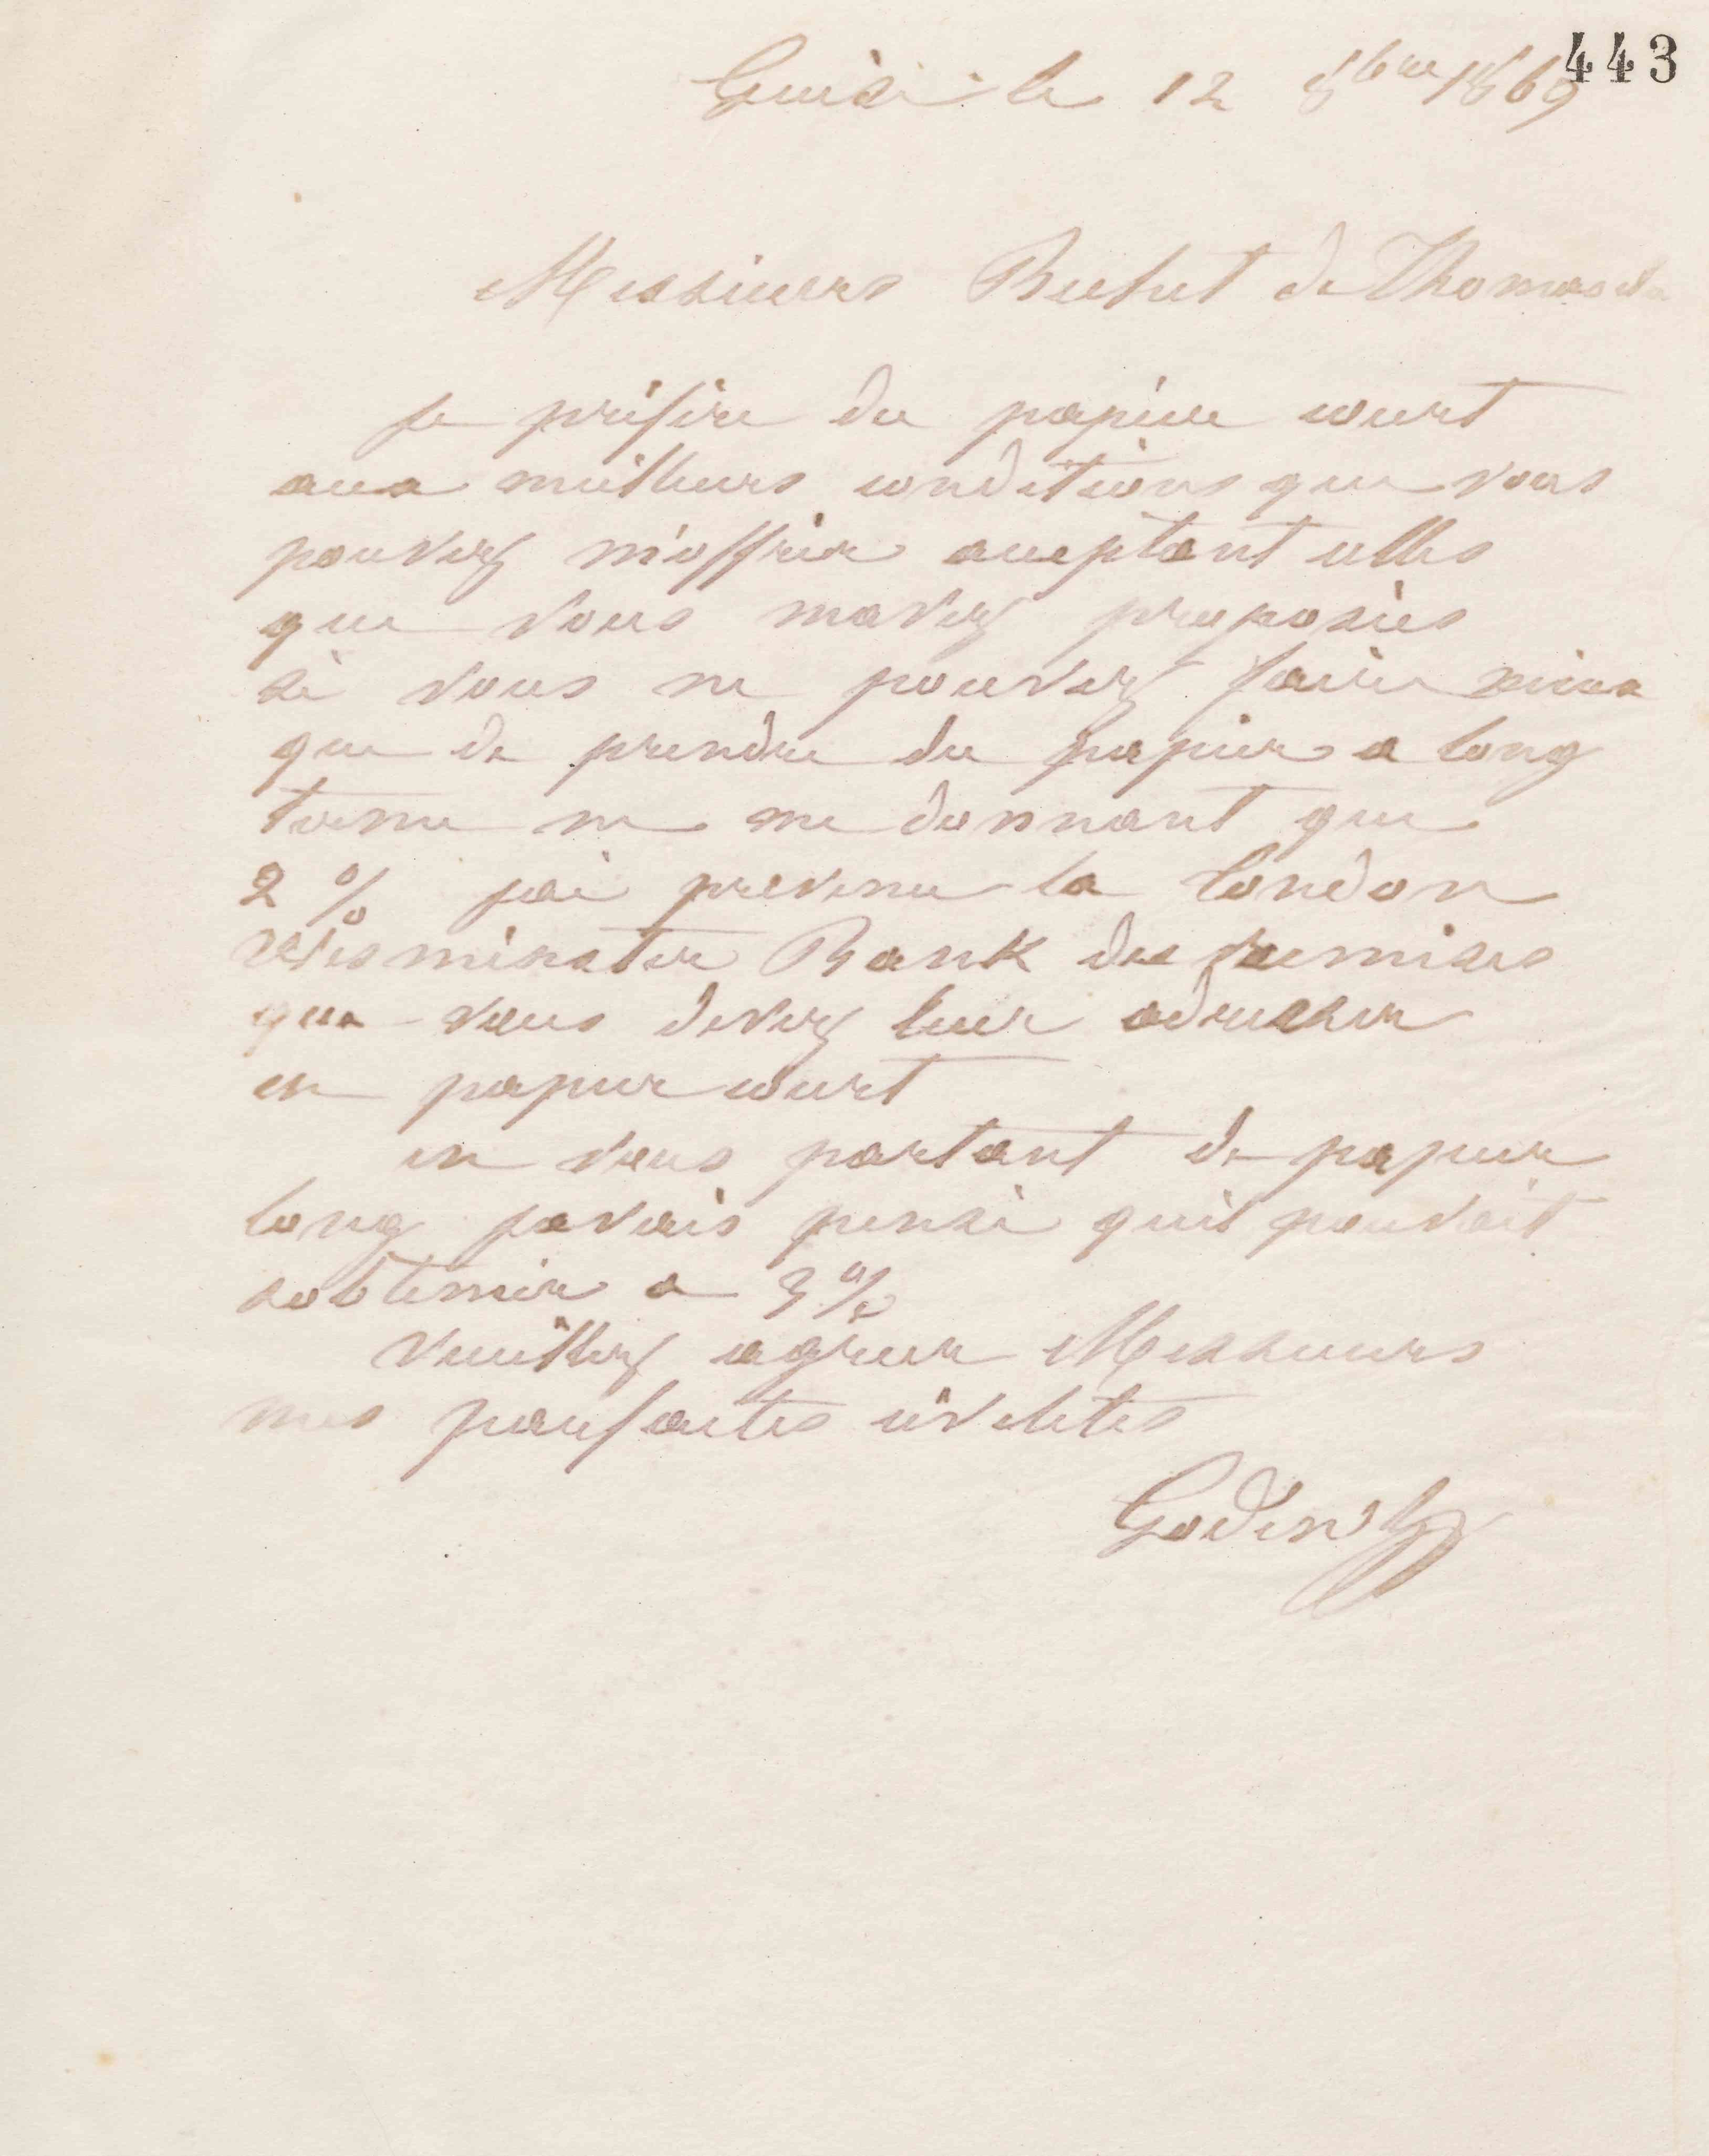 443
Guise le 12 8bre 1869
Messieurs Bechet de Thomas et Cie
je préfère du papier court
aux meilleurs conditions que vous
pouvez m'offrir acceptant celles
que vous mavez proposées
si vous ne pouvez faire mieux
que de prendre du papier a long
terme ne me donnant que
2 % jai prevenu la London
Wesminster Bank des remises
que vous devez leur adresser
en papier court
en vous parlant de papier
long javais pensé quil pouvait
sobtenir a 3 %
Veuillez agreer Messieurs
mes parfaites civilités
Godin